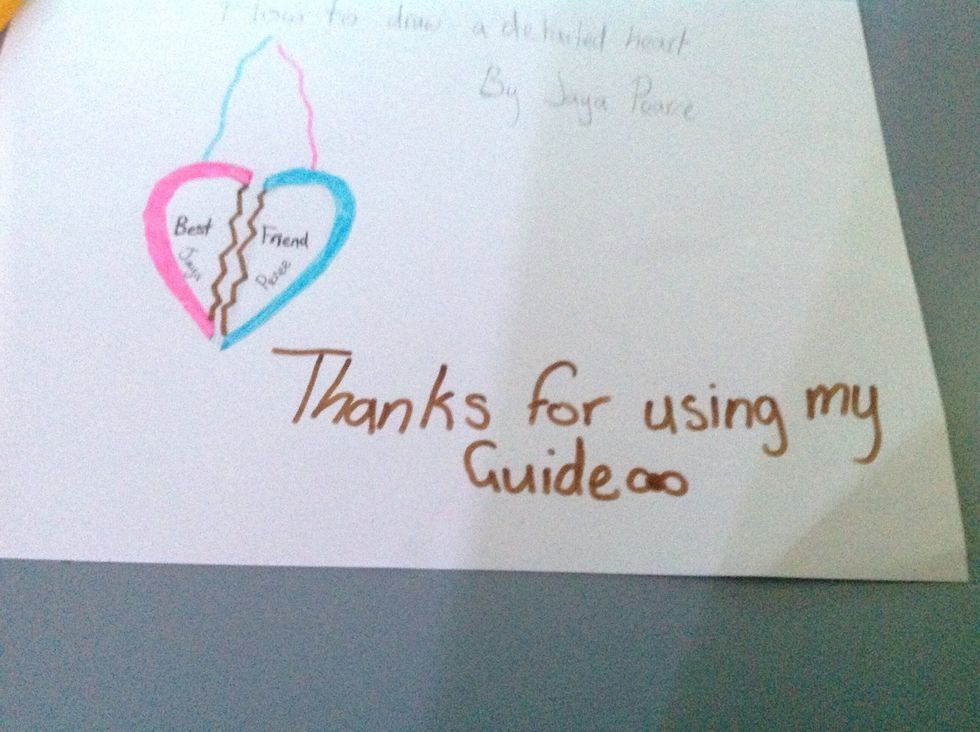 How to draw a detailed heart
By Jaya Pearce
Best
Jaya
Friend
Pearce
Thanks for using my
Guide